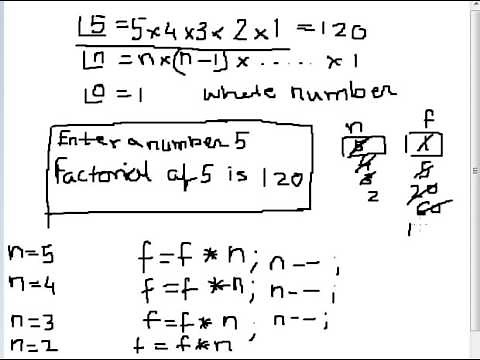 ⌊5 = 5×4×3×2×1 = 120
⌊n = n×(n-1)× ..... ×1
⌊0 = 1 whole number
n f
Enter a number 5
Factorial of 5 is 120
5 1
4 5
3 20
2 60
1
n=5 f = f * n; n--;
n=4 f = f * n; n--;
n=3 f = f * n; n--;
n=2 f = f * n